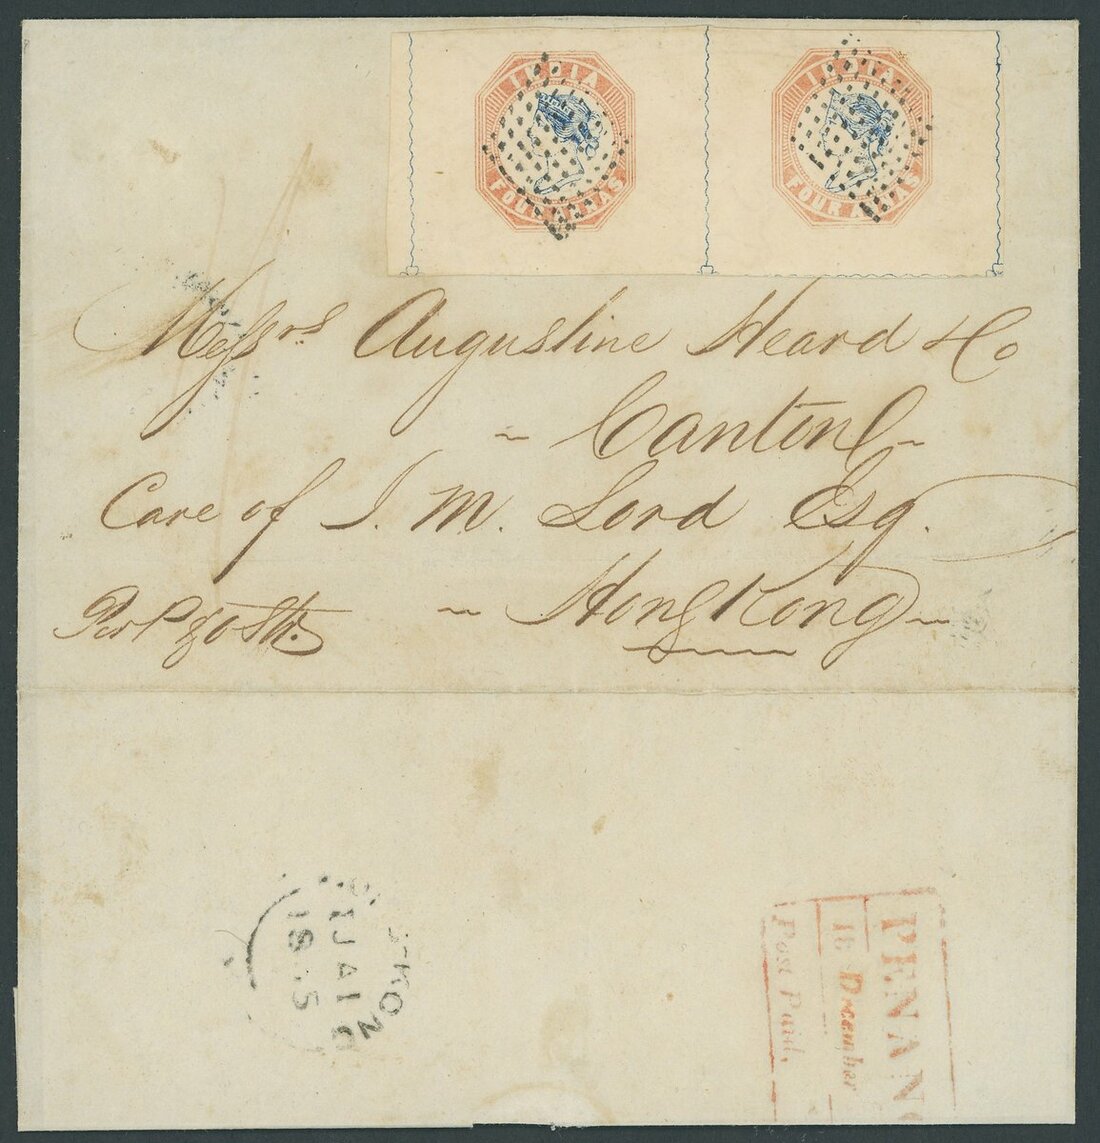 INDIA
FOUR ANNAS
INDIA
FOUR ANNAS
Messrs Augustine Heard & Co
~ Canton ~
Care of J. M. Lord Esq.
~ HongKong ~
Per
1 JA
18 5
KON
PENAN
December
Post Paid,